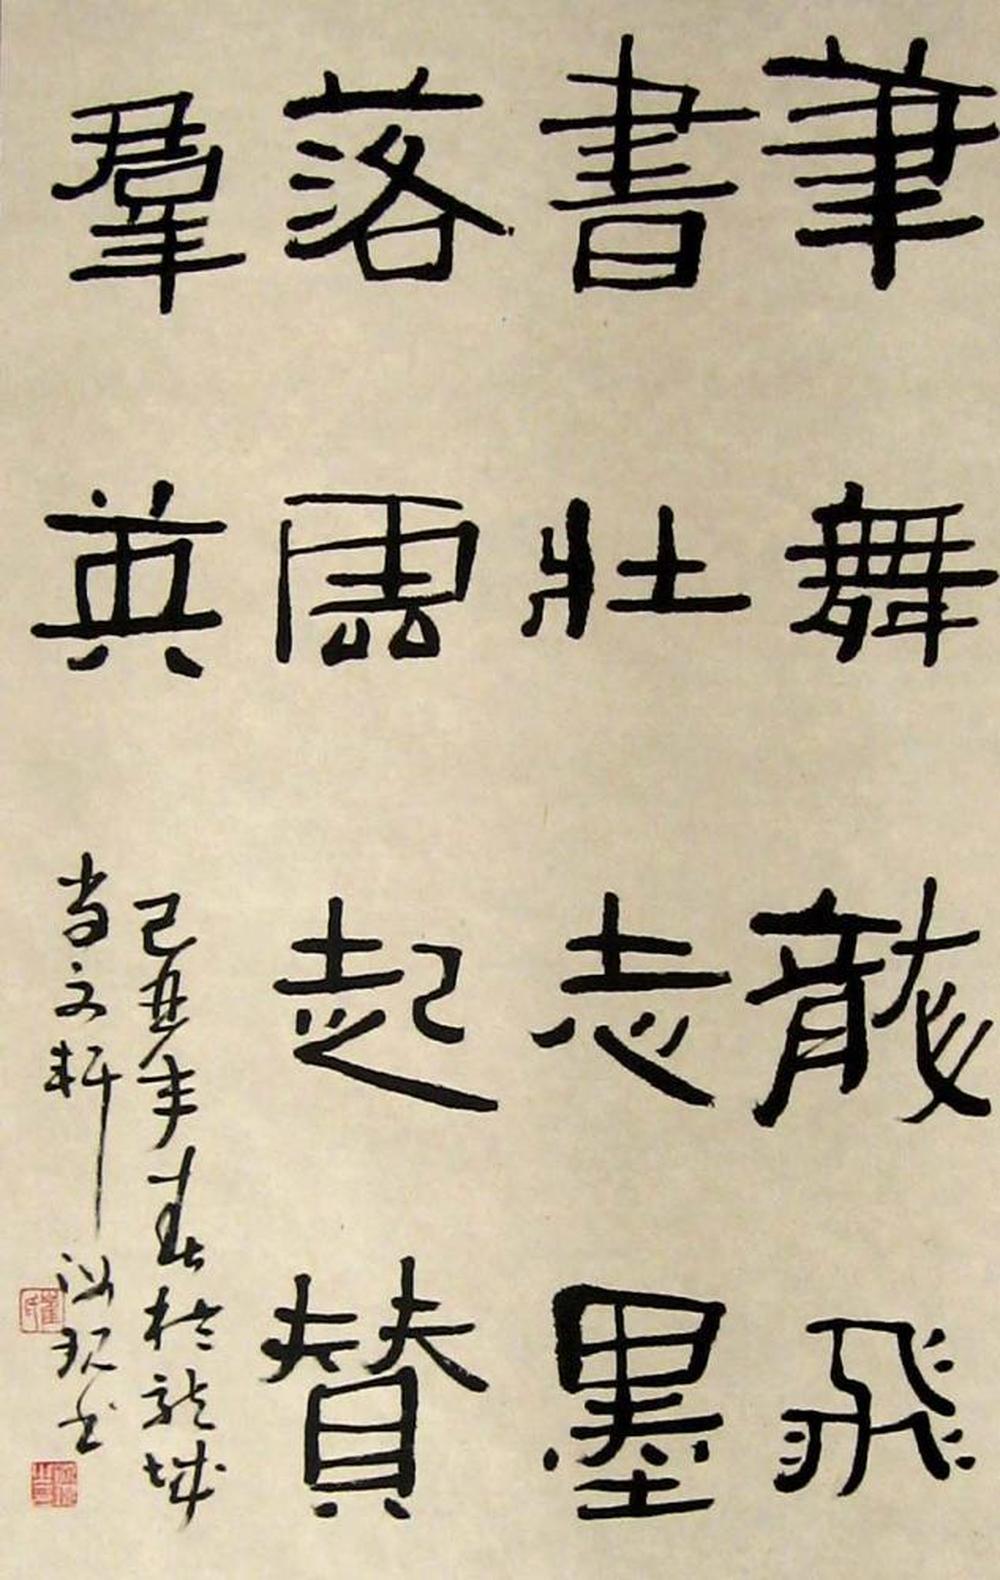 筆舞龍飛
書壯志墨
落雲起贊
羣英
己丑年春於龍城
尚文軒
汝現书